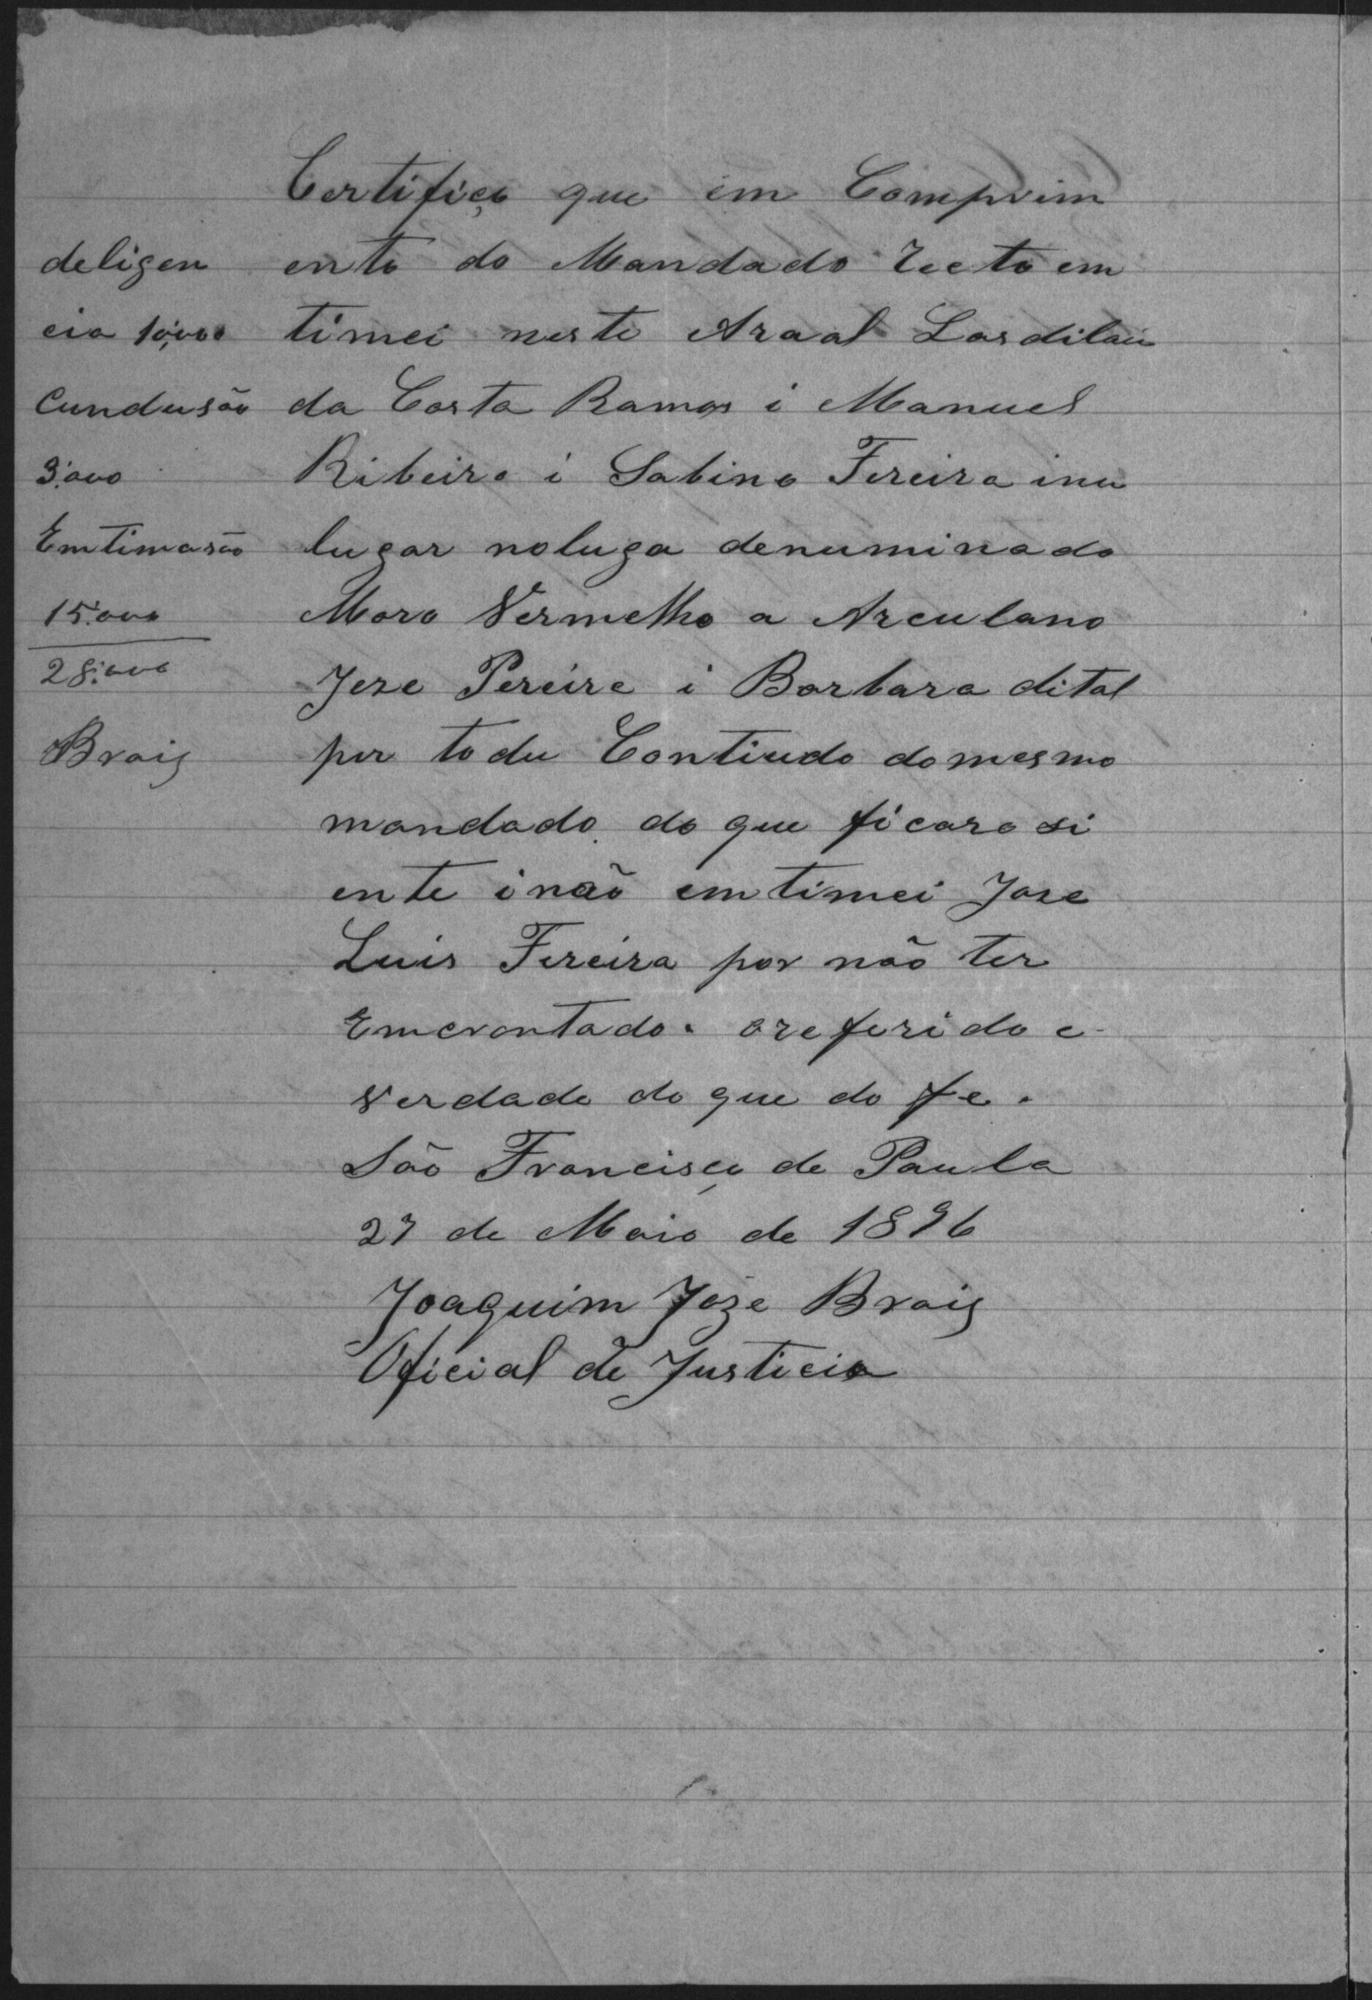 deligen
cia 10,000
Cundusão
3:000
Emtimasão
15:000
28:000
Brais
Certifico que em Comprim
ento do Mandado Recto em
timei neste Araal Lasdilau
da Costa Ramos i Manuel
Ribeiro i Sabino Fereira inu
lugar noluga denuminado
Moro Vermelho a Arculano
Jeze Pereire i Barbara dital
por todu Contiudo domesmo
mandado. do que ficaro si
ente i não emtimei Joze
Luis Fereira por não ter
Emcrontado. oreferido e
verdade do que do fe.
São Francisco de Paula
27 de Maio de 1896
Joaquim Joze Brais
Oficial de Justicia